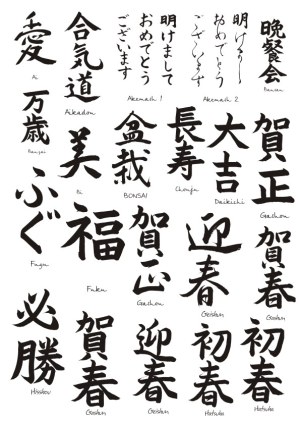 愛
Ai
合気道
Aikadou
明けまして
おめでとう
ございます
Akemash 1
明けまして
おめでとう
ございます
Akemash 2
晩餐会
Bansan
万歳
Banzai
美
Bi
盆栽
BONSAI
長寿
Chouju
大吉
Daikichi
賀正
Gashou
ふぐ
Fugu
福
Fuku
賀正
Gashou
迎春
Geishun
賀春
必勝
Hisshou
賀春
迎春
Geishun
初春
初春